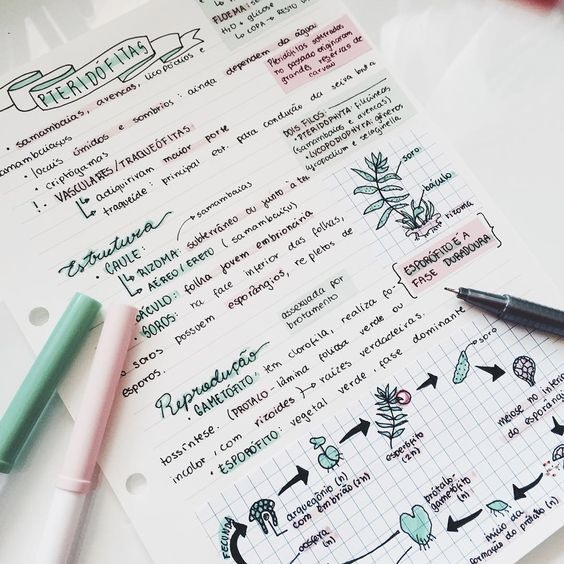 FLOEMA:
H2O + glicose
↳ COPA → RESTO
PTERIDÓFITAS
• samambaias, avencas, licopódios e
samambaiaçus
• locais úmidos e sombrios: ainda dependem da água
• criptógamas
!. VASCULARES/TRAQUEÓFITAS:
↳ adquiriram maior porte
↳ traqueíde: principal est. para condução da seiva bruta
Pteridófitas soterradas
no passado originaram
grandes reservas de
carvão
DOIS FILOS:
• PTERIDOPHYTA: filicíneas
(samambaias e avencas)
• LYCOPODIOPHYTA: gêneros
lycopodium e selaginella
Estrutura
• CAULE:
→ samambaias
↳ RIZOMA: subterrâneo ou junto à ter
↳ AÉREO/ERETO (samambaiaçu)
BÁCULO: folha jovem embrionária
• SOROS: na face inferior das folhas,
soros possuem esporângios, repletos de
esporos.
soro
báculo
rizoma
ESPORÓFITO É A
FASE DURADOURA
assexuada por
brotamento
Reprodução
• GAMETÓFITO: tem clorofila, realiza fo
tossíntese. (PROTALO - lâmina fouoda verde ou
incolor, com rizoides → raízes verdadeiras.
• ESPORÓFITO: vegetal verde, fase dominante
soro
meiose no interior
do esporângio
esporófito
(2n)
arquegônio (n)
com embrião (2n)
oosfera
(n)
FECUND
prótalo-
gametófito
(n)
início da
formação do prótalo (n)